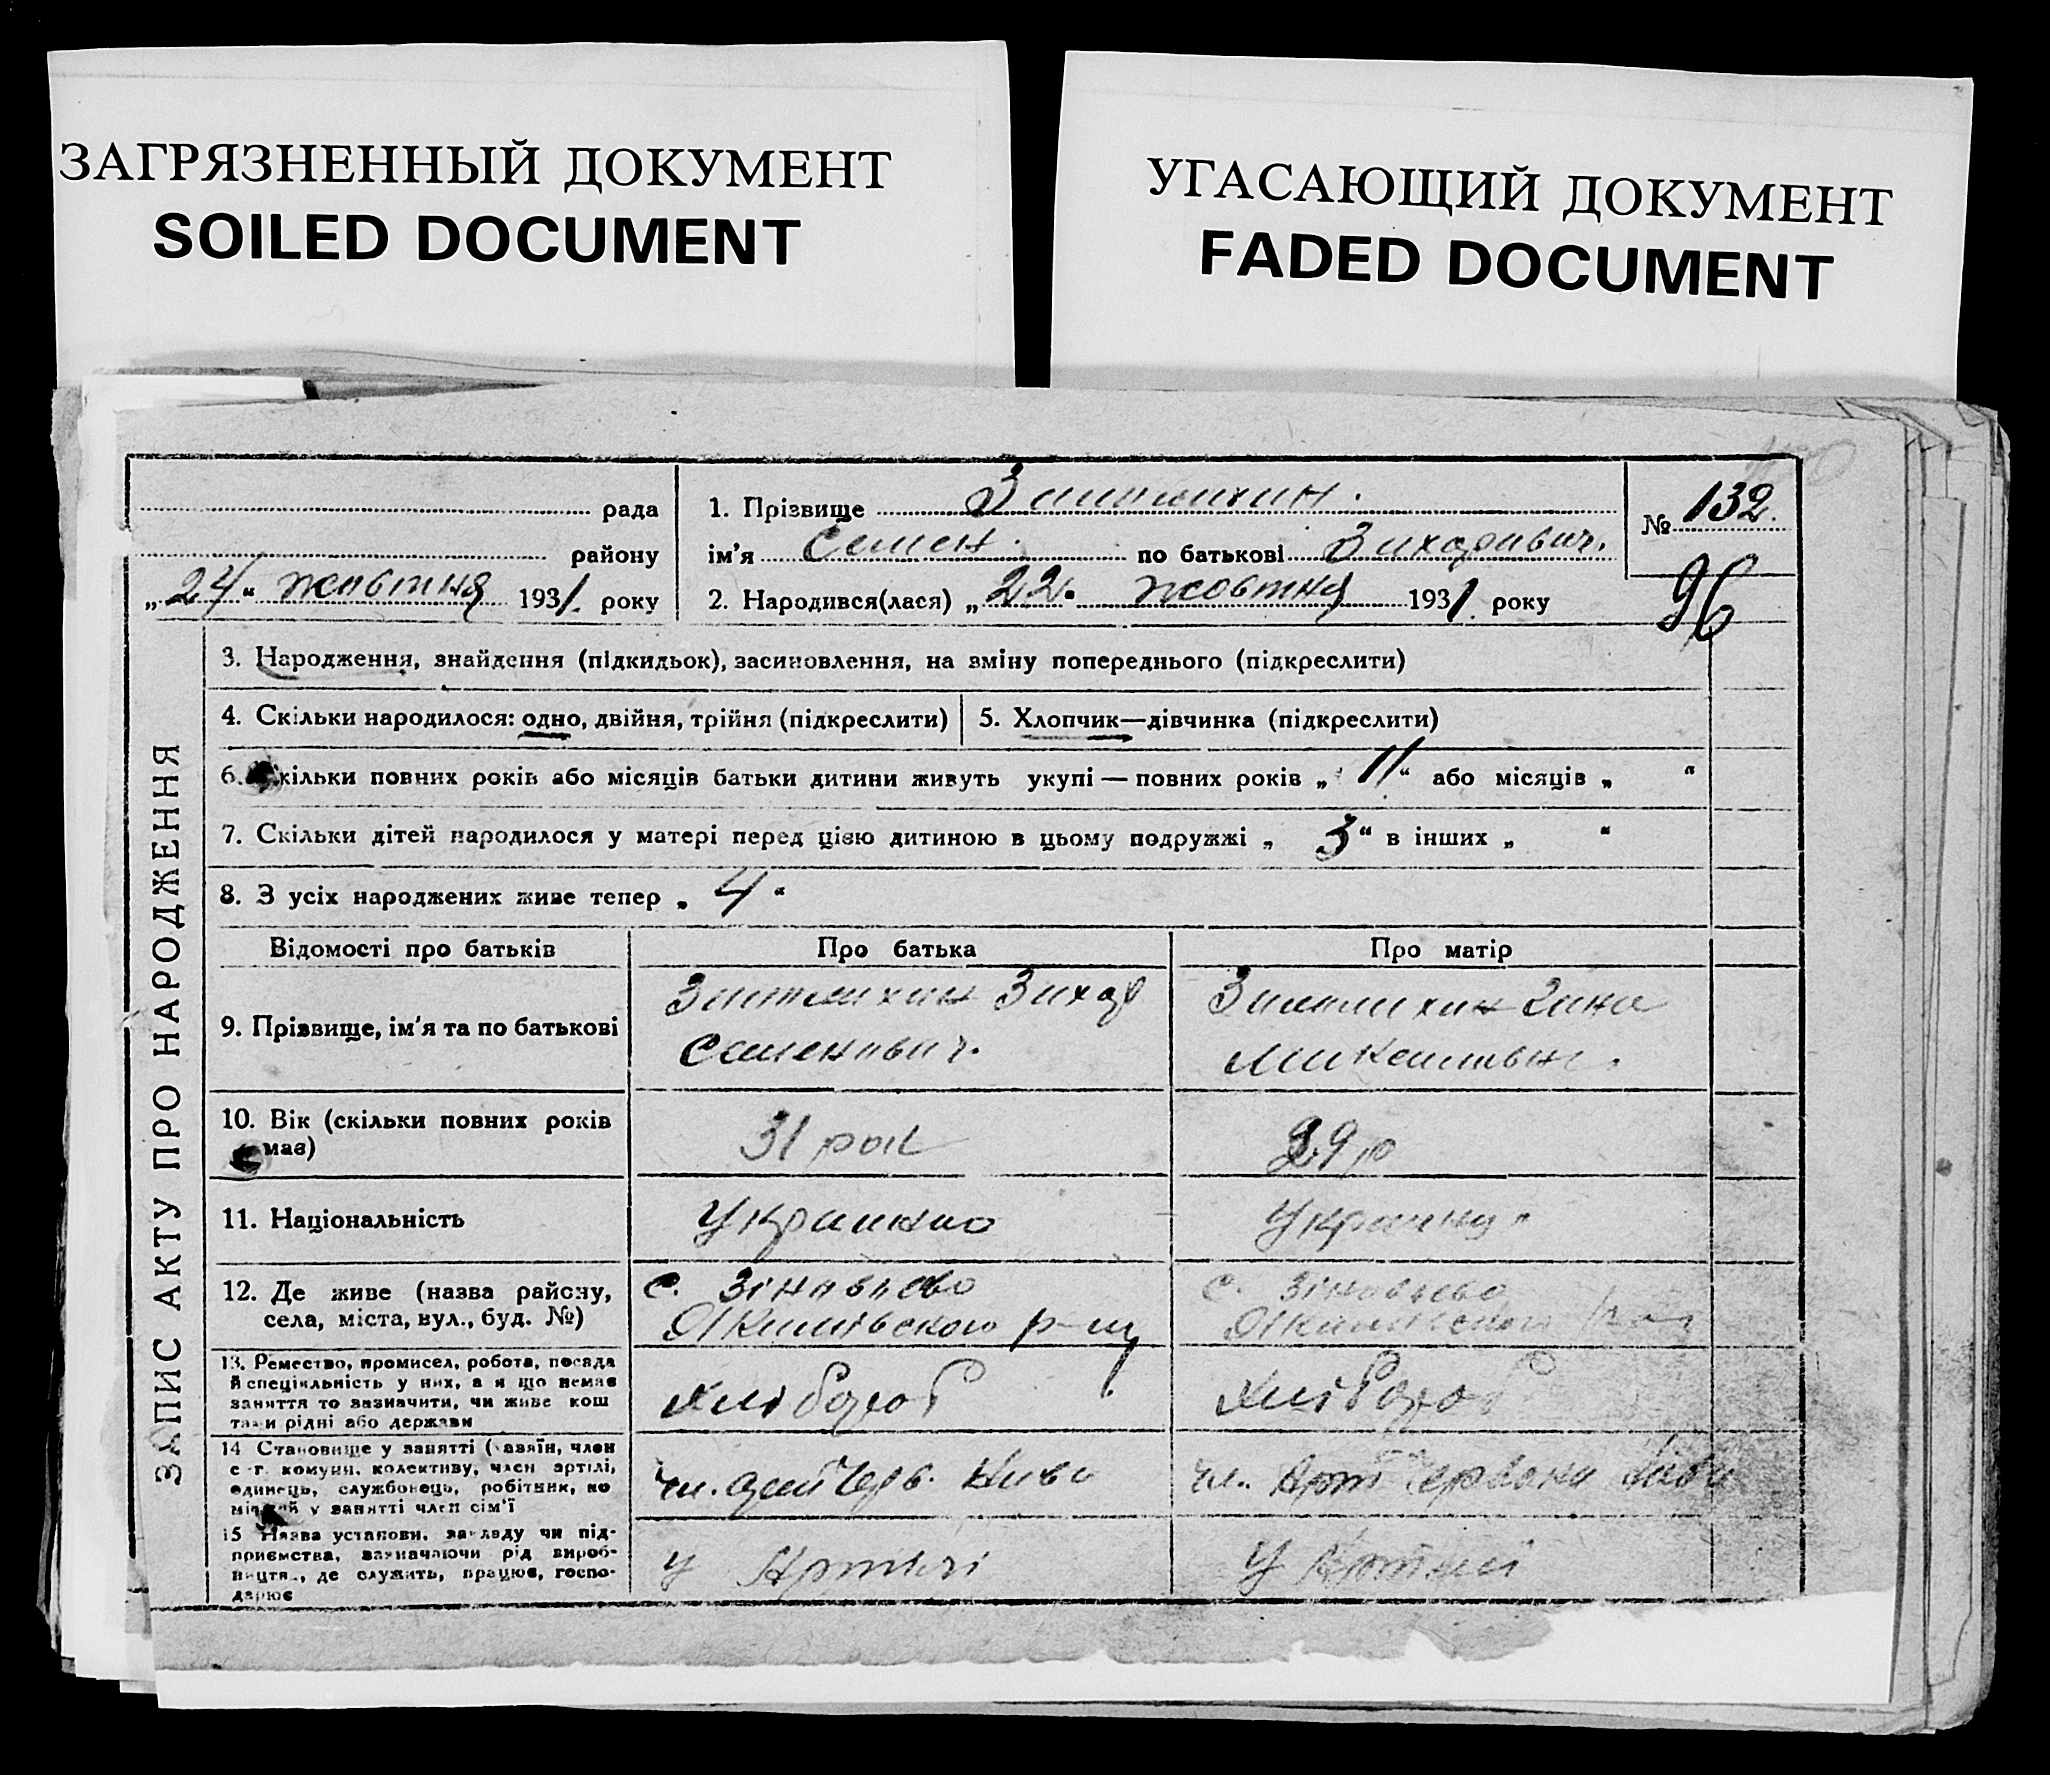 ЗАГРЯЗНЕННЫЙ ДОКУМЕНТ
SOILED DOCUMENT
УГАСАЮЩИЙ ДОКУМЕНТ
FADED DOCUMENT
ЗАПИС АКТУ ПРО НАРОДЖЕННЯ
рада
району
„24“ жовтня 1931. року
1. Прізвище
ім’я Семен. по батькові Захарович.
2. Народився(лася) „22. жовтня 1931. року
№ 132.
96
3. Народження, знайдення (підкидьок), засиновлення, на зміну попереднього (підкреслити)
4. Скільки народилося: одно, двійня, трійня (підкреслити)
5. Хлопчик—дівчинка (підкреслити)
6. Скільки повних років або місяців батьки дитини живуть укупі — повних років „ 11 “ або місяців „ “
7. Скільки дітей народилося у матері перед цією дитиною в цьому подружжі „ 3 “ в інших „ “
8. З усіх народжених живе тепер „ 4 “
Відомості про батьків
Про батька
Про матір
9. Прізвище, ім’я та по батькові
Захар
Семенович.
10. Вік (скільки повних років
має)
31 рок
29 р
11. Національність
12. Де живе (назва району,
села, міста, вул., буд. №)
с. Зіновьево
Якимівского р-ну
с. Зіновьево
Якимівского
13. Ремество, промисел, робота, посада
й спеціяльність у них, а я що немає
заняття то зазначити, чи живе кош
тами рідні або держави
Хлібороб
Хлібороб
14 Становище у занятті (хазяїн, член
с-г. комуни, колективу, член артілі,
одинець, службовець, робітник, по
міжний у занятті член сім’ї
чл. Черв. Нива
чл. Арт Червона Нива
15 Назва установи, закладу чи під-
приємства, зазначаючи рід вироб-
ництва, де служить, працює, госпо-
дарює
У Артілі
У Артілі